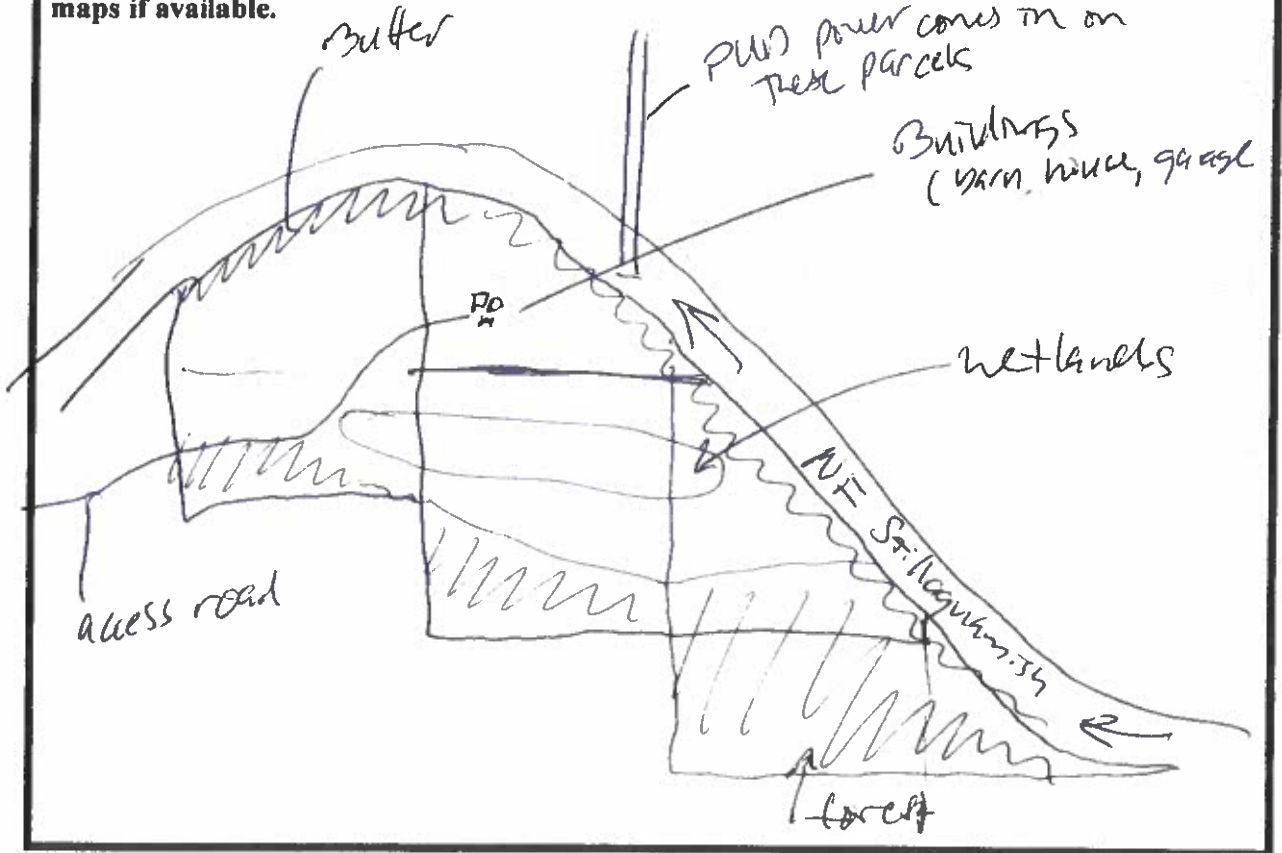 maps if available.
Buffer
PUD power comes in on
these parcels
Buildings
(barn, house, garage
wetlands
NF Stillaguamish
access road
forest